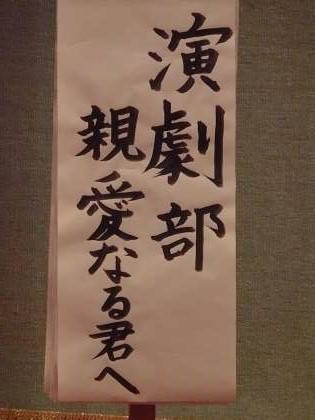 演劇部
親愛なる君へ